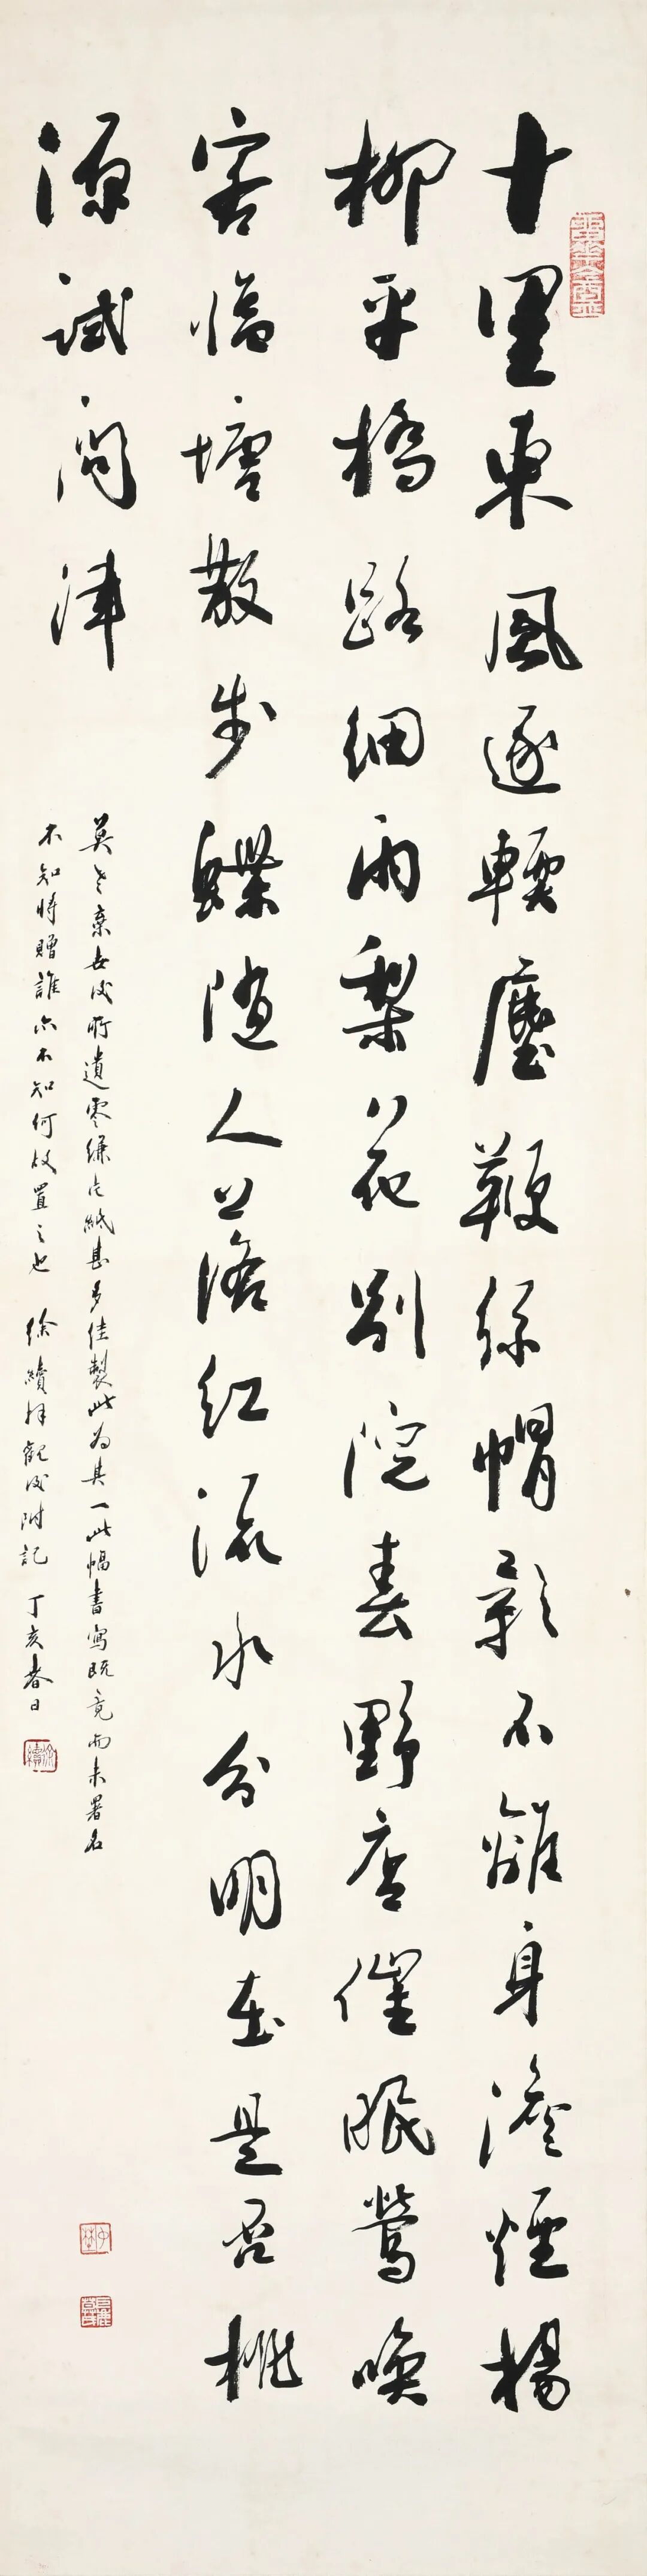 十里東風逐輭塵鞭絲帽影不離身澹煙楊
柳平橋路細雨梨花別院春野店催眠鶯喚
客臨塘散步蝶隨人落紅流水分明在是否桃
源試問津
莫老棄世後所遺零縑片紙甚多佳製此為其一此幅書寫既竟而未署名
不知將贈誰亦不知何故置之也 徐續拜觀後附記 丁亥春日
徐續